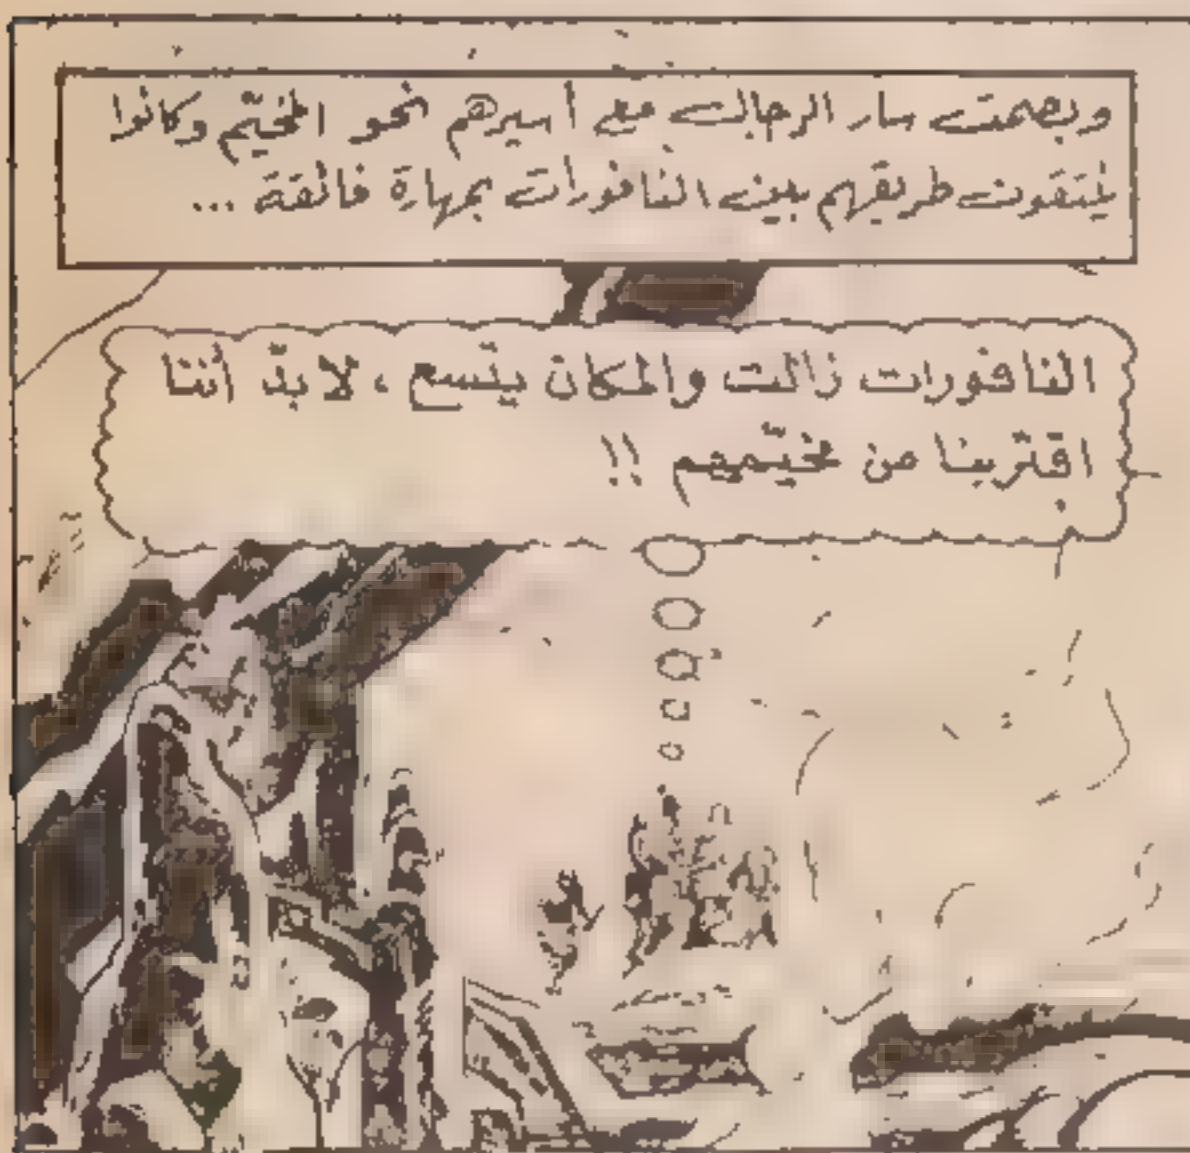 وبصمت سار الرجال مع أسيرهم نحو المخيّم وكانوا
ينتقون طريقهم بين النافورات بمهارة فائقة ...
النافورات زالت والمكان يتّسع ، لابدّ أننا
اقتربنا من مخيّمهم !!